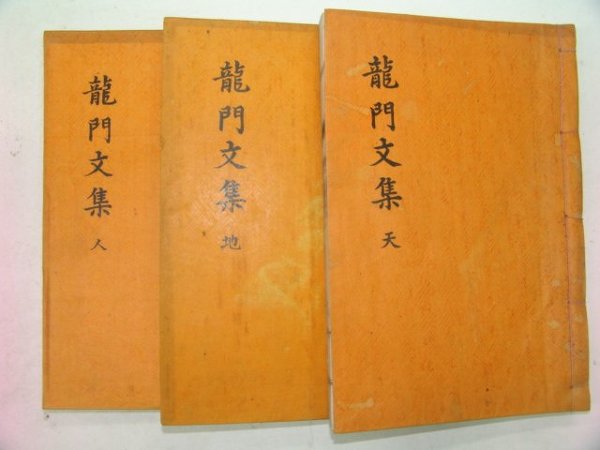 龍門文集 天
龍門文集 地
龍門文集 人